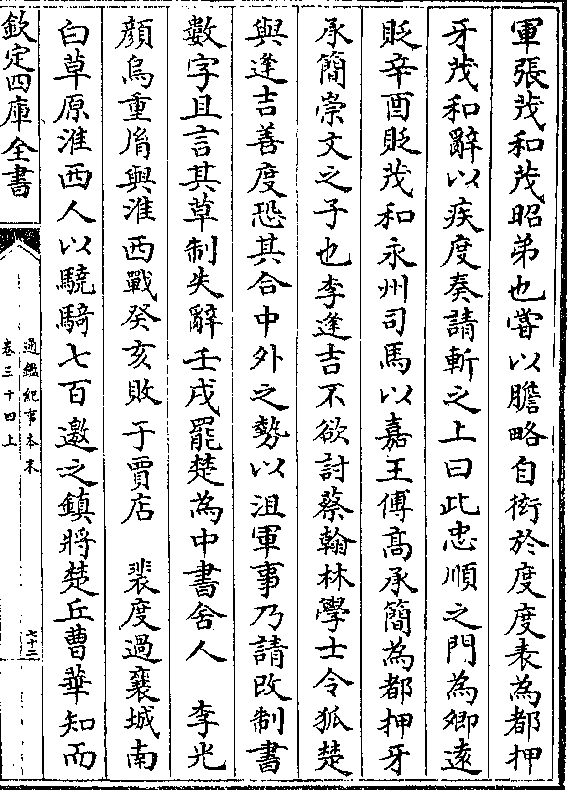 軍張茂和茂昭弟也嘗以膽略自衒於度度表為都押
牙茂和辭以疾度奏請斬之上曰此忠順之門為卿遠
貶辛酉貶茂和永州司馬以嘉王傅高承簡為都押牙
承簡崇文之子也李逢吉不欲討蔡翰林學士令狐楚
與逢吉善度恐其合中外之勢以沮軍事乃請改制書
數字且言其草制失辭壬戌罷楚為中書舍人　李光
顔烏重胤與淮西戰癸亥敗于賈店　裴度過襄城南
白草原淮西人以驍騎七百邀之鎮將楚丘曹華知而
欽定四庫全書
通鑑紀事本末
卷三十四上
七十三